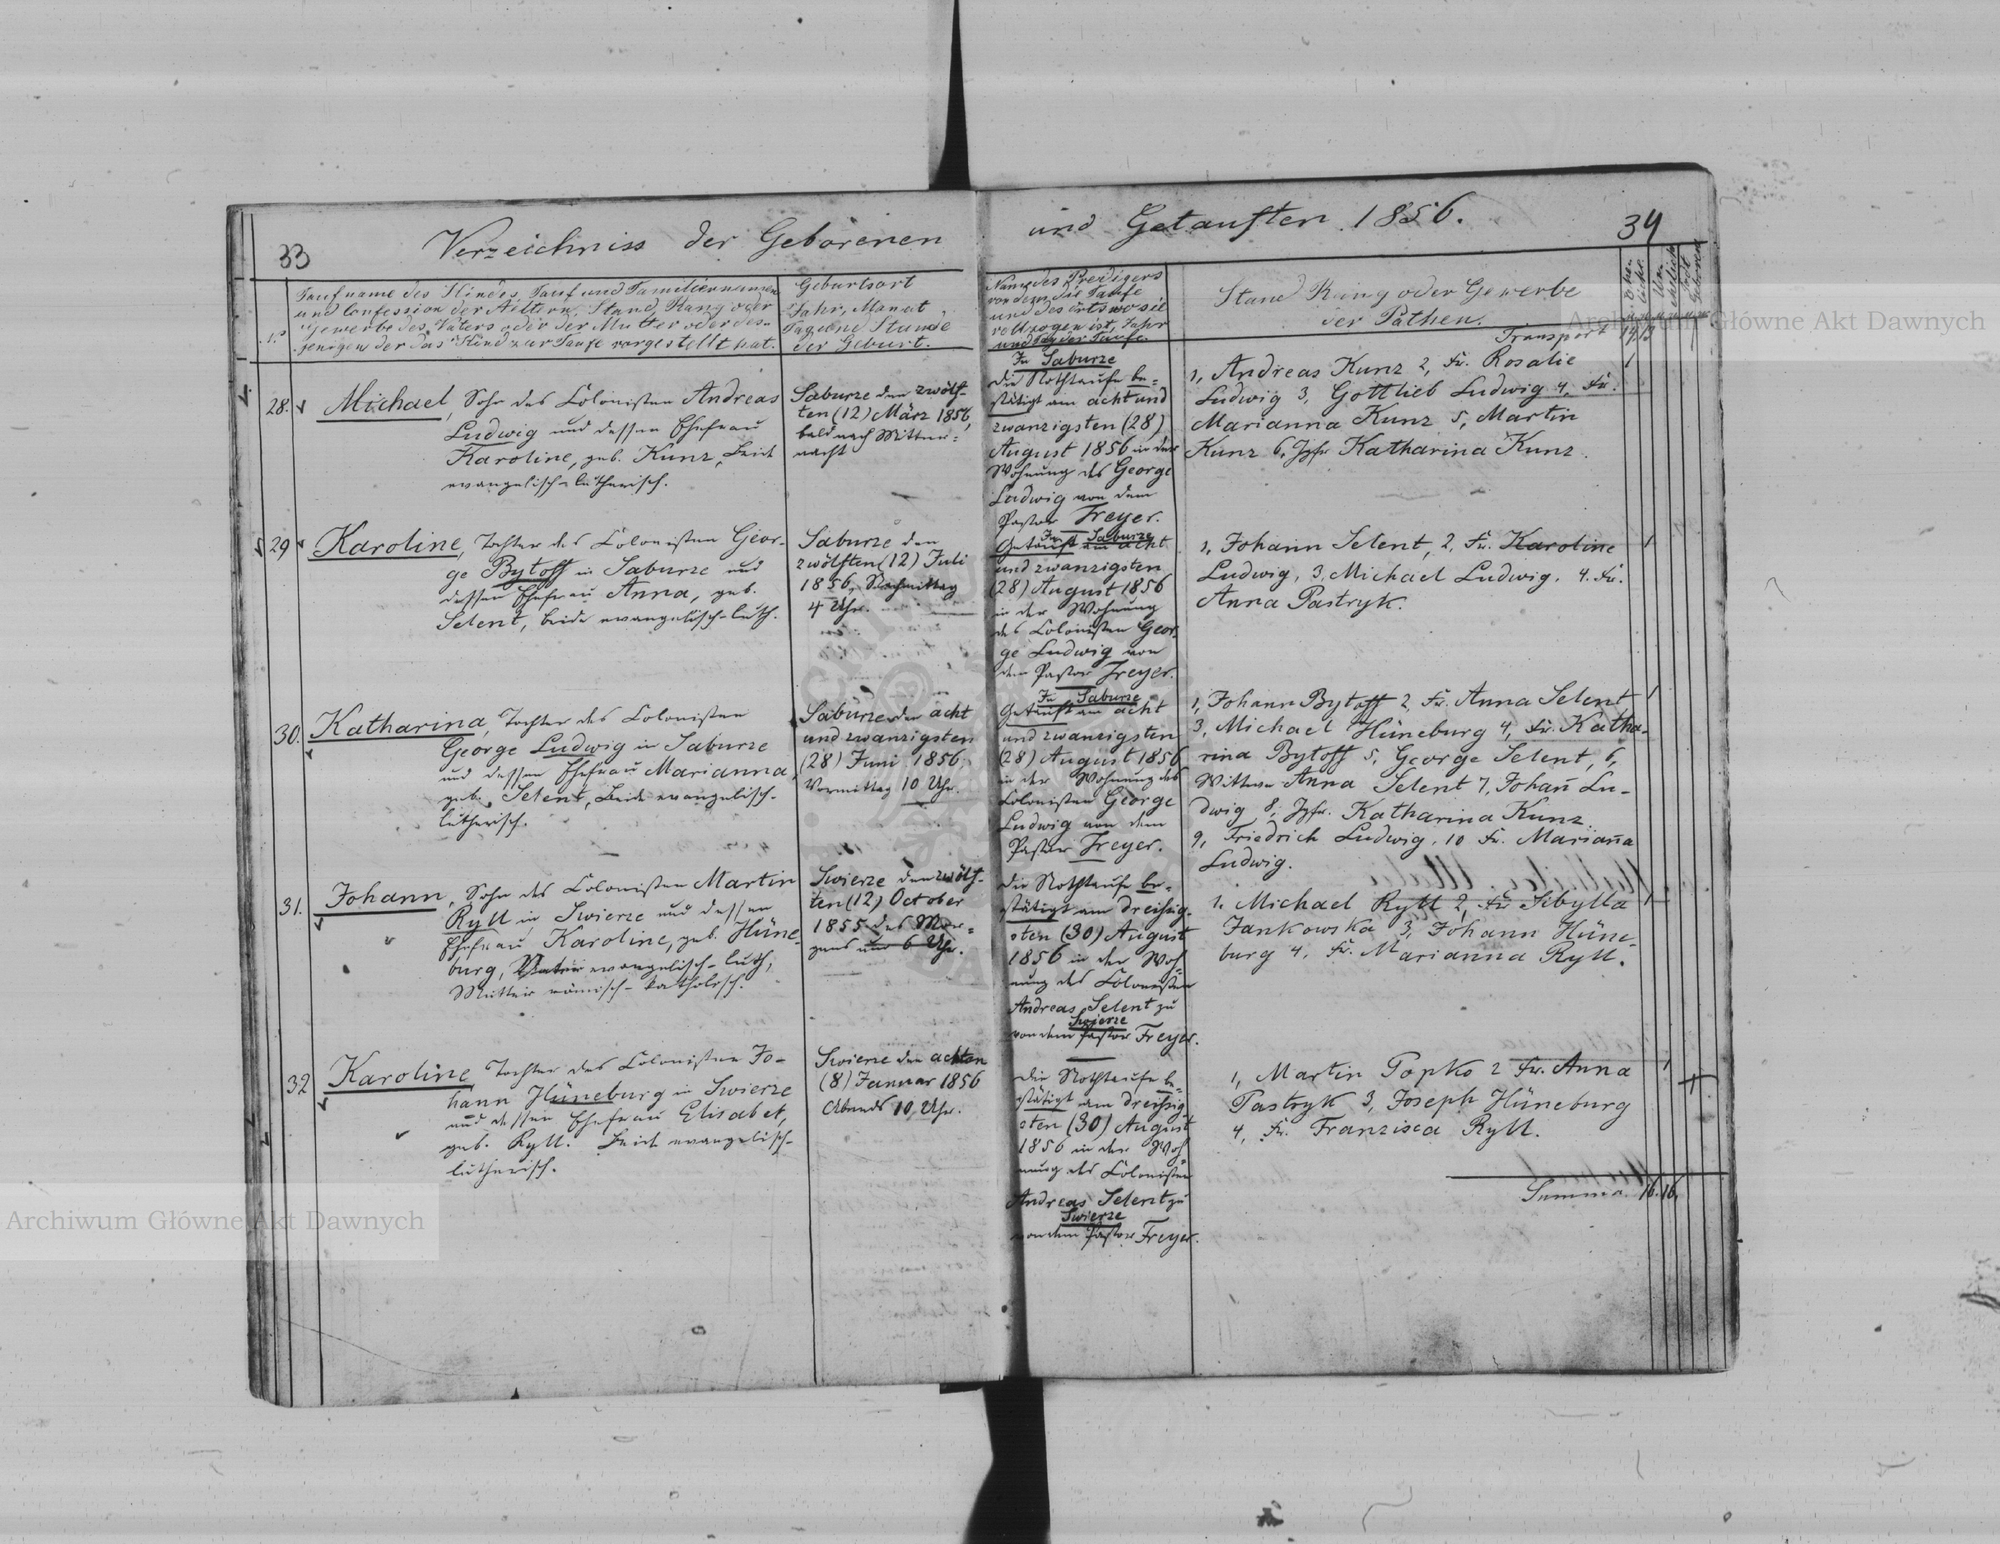 33
Verzeichniss der Geborenen
und Getauften 1856.
34
Taufname des Kindes, Tauf und Familiennamen
und Confession der Aeltern, Stand, Rang oder
Gewerbe des Vaters oder der Mutter oder des-
jenigen der das Kind zur Taufe vorgestellt hat.
Geburtsort
Jahr, Monat
Tag und Stunde
der Geburt.
Name des Predigers
von dem die Taufe
und des Orts wo sie
vollzogen ist, Jahr
und Tag der Taufe.
Stand Rang oder Gewerbe
der Pathen.
Transport
28.
Michael, Sohn des Colonisten Andreas
Ludwig und dessen Ehefrau
Karoline, geb. Kunz, beide
evangelisch-lutherisch.
Saburze den zwölf-
ten (12) März 1856,
bald nach Mitter-
nacht
In Saburze
Die Nothtaufe be-
stätigt am acht und
zwanzigsten (28)
August 1856 in der
Wohnung des George
Ludwig von dem
Pastor Freyer.
1, Andreas Kunz 2, Fr. Rosalie
Ludwig 3, Gottlieb Ludwig 4, Fr.
Marianna Kunz 5, Martin
Kunz 6, Jgfr. Katharina Kunz.
1
29
Karoline, Tochter des Colonisten Geor-
ge Bytoff in Saburze und
dessen Ehefrau Anna, geb.
Selent, beide evangelisch-luth.
Saburze den
zwölften (12) Juli
1856, Nachmittag
4 Uhr.
In Saburze
Getauft am acht
und zwanzigsten
(28) August 1856
in der Wohnung
des Colonisten Geor-
ge Ludwig von
dem Pastor Freyer.
1, Johann Selent, 2, Fr. Karoline
Ludwig, 3, Michael Ludwig, 4. Fr.
Anna Pastryk.
1
30.
Katharina, Tochter des Colonisten
George Ludwig in Saburze
und dessen Ehefrau Marianna,
geb. Selent, beide evangelisch-
lutherisch.
Saburze den acht
und zwanzigsten
(28) Juni 1856,
Vormittag 10 Uhr.
In Saburze
Getauft am acht
und zwanzigsten
(28) August 1856
in der Wohnung des
Colonisten George
Ludwig von dem
Pastor Freyer.
1, Johann Bytoff 2, Fr. Anna Selent
3, Michael Hüneburg 4, Fr. Katha-
rina Bytoff 5, George Selent, 6,
Wittwe Anna Selent 7, Johan̄ Lu-
dwig 8, Jgfr. Katharina Kunz
9, Friedrich Ludwig, 10 Fr. Marian̄a
Ludwig.
1
31.
Johann, Sohn des Colonisten Martin
Ryll in Swierze und dessen
Ehefrau Karoline, geb. Hüne-
burg, Vater evangelisch-luth,
Mutter römisch-katholisch.
Swierze den zwölf-
ten (12) October
1855 des Mor-
gens um 6 Uhr.
Die Nothtaufe be-
stätigt am dreissig-
sten (30) August
1856 in der Woh-
nung des Colonisten
Andreas Selent zu
Swierze
von dem Pastor Freyer.
1. Michael Ryll 2, Fr. Sibylla
Jankowska 3, Johann Hüne-
burg 4, Fr. Marianna Ryll.
1
32
Karoline, Tochter des Colonisten Jo-
hann Hüneburg in Swierze
und dessen Ehefrau Elisabet,
geb. Ryll. Beide evangelisch-
lutherisch.
Swierze den achten
(8) Januar 1856
Abends 10 Uhr.
Die Nothtaufe be-
stätigt am dreissig-
sten (30) August
1856 in der Woh-
nung des Colonisten
Andreas Selent zu
Swierze
von dem Pastor Freyer.
1, Martin Popko 2 Fr. Anna
Pastryk 3, Joseph Hüneburg
4, Fr. Franzisca Ryll.
1
Summa 16. 16.
Archiwum Główne Akt Dawnych
Archiwum Główne Akt Dawnych